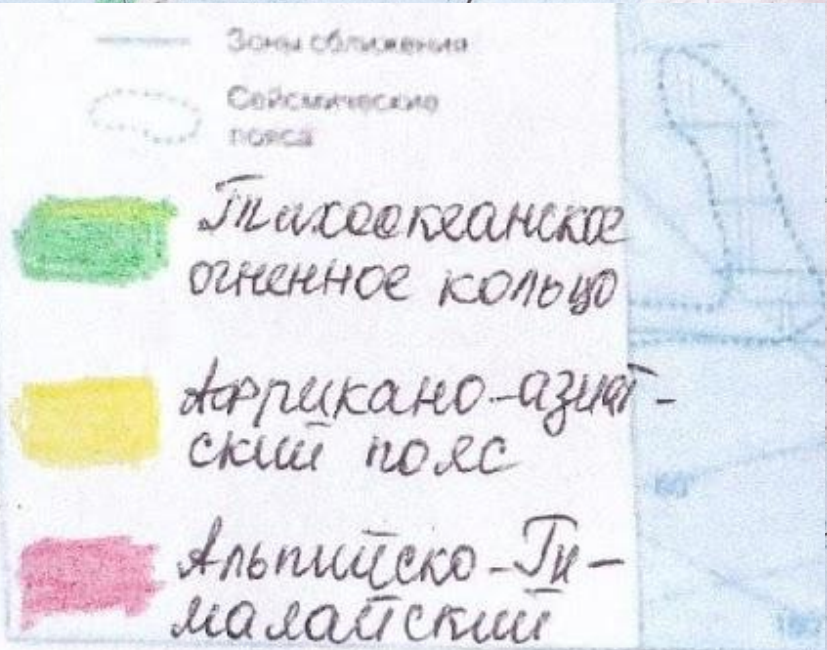 Зоны сближения
Сейсмические
пояса
Тихоокеанское
огненное кольцо
Африкано-азиат-
ский пояс
Альпийско-Ги-
малайский